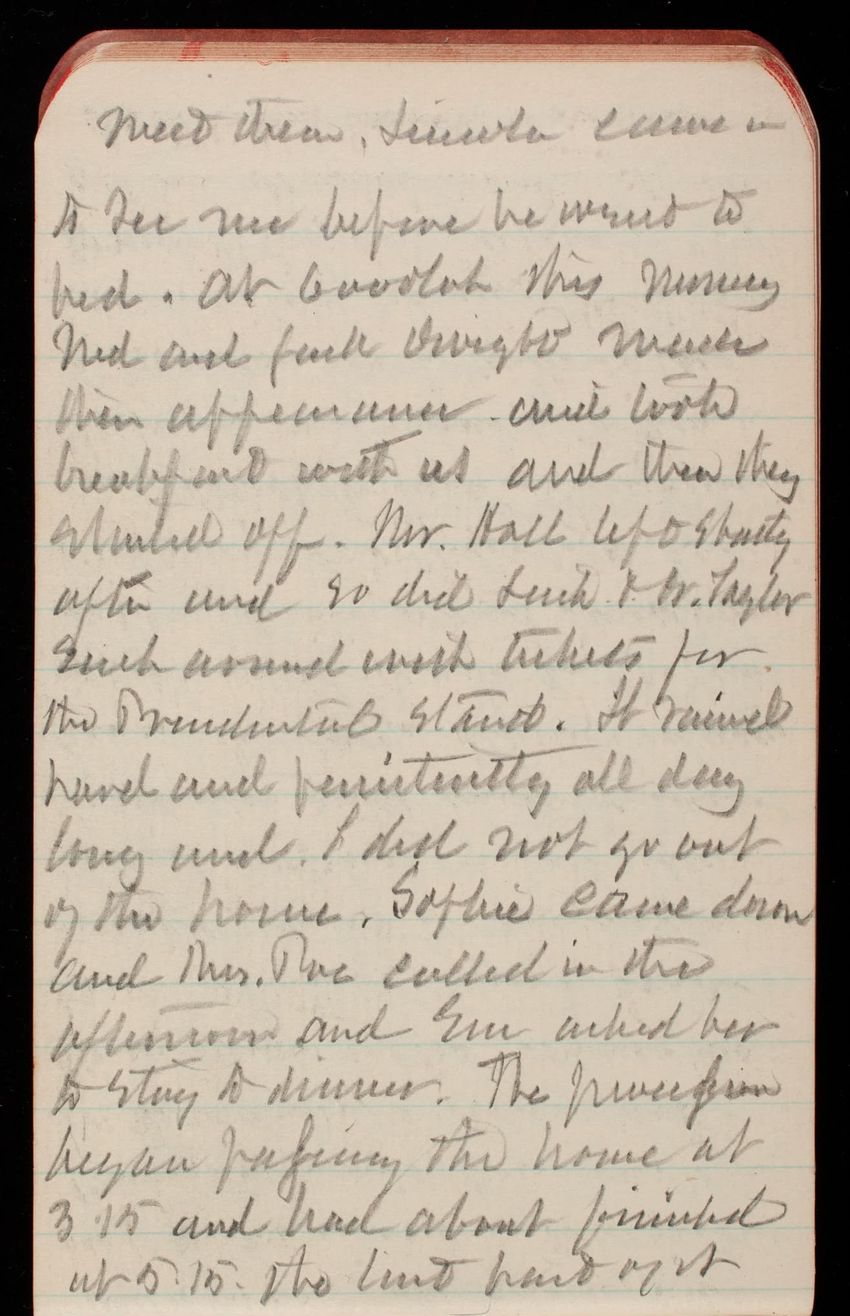 meet them. Lincoln came in
to see me before he went to
bed. At 6 oclock this morning
Ned and Jack Dwight made
their appearance and took
breakfast with us and then they
started off. Mr. Hall left shortly
after and so did Luck & Dr. Taylor
each armed with tickets for
the Presidential Stand. It rained
hard and persistently all day
long and I did not go out
of the house. Sophie came down
and Mrs. Poe called in the
afternoon and Em asked her
to stay to dinner. The procession
began passing the house at
3 15 and had about finished
at 5.15. The last part of it